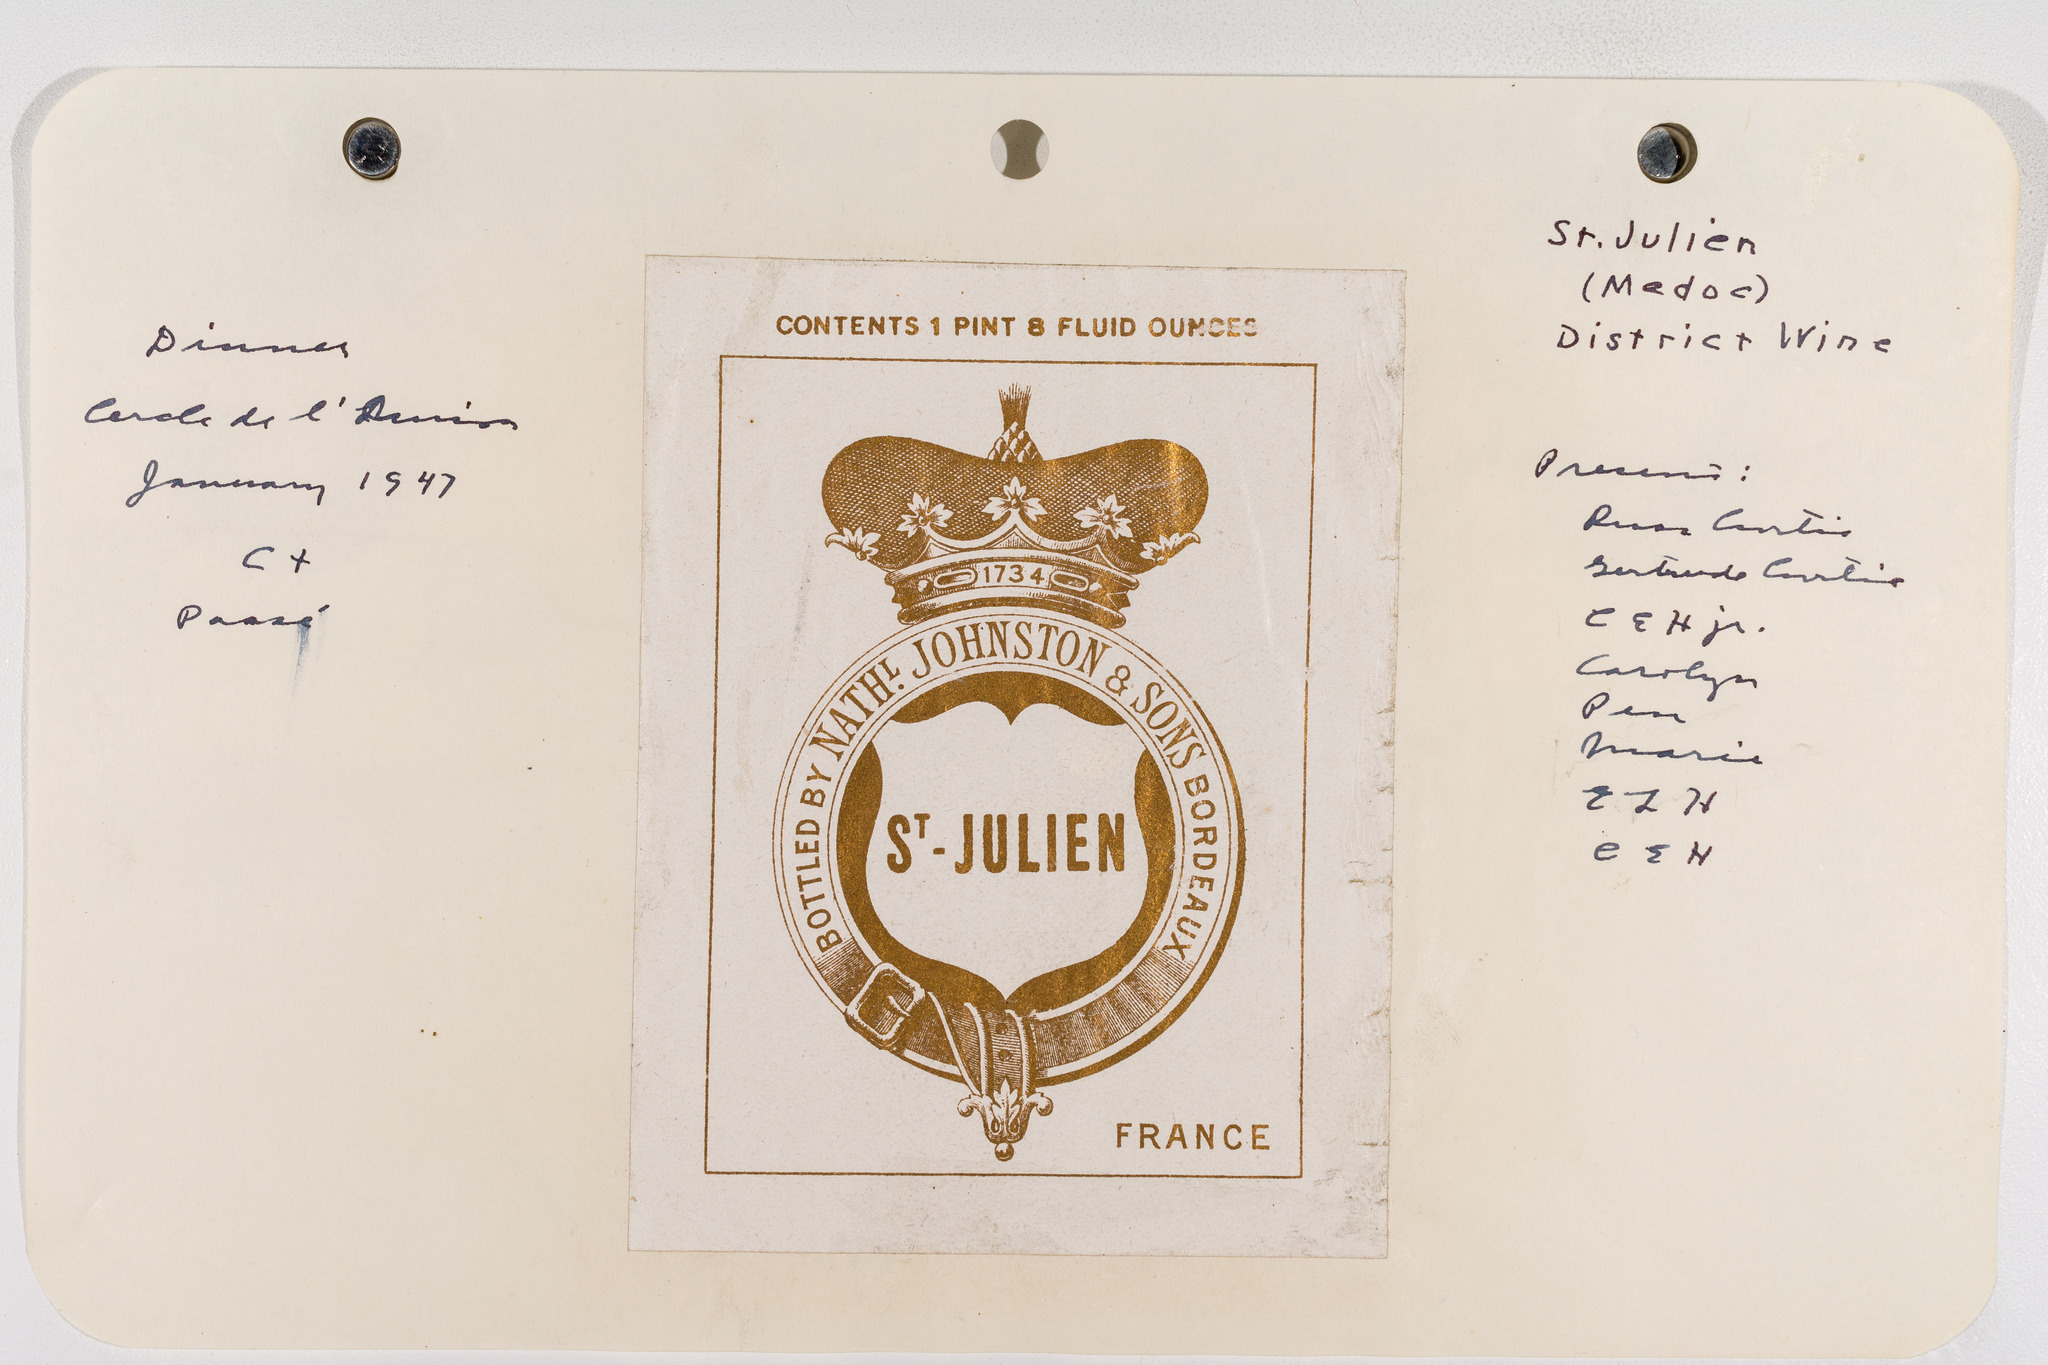 Dinner
Cercle de l'Union
January 1947
C+
Passé
CONTENTS 1 PINT 8 FLUID OUNCES
1734
BOTTLED BY NATHL. JOHNSTON & SONS BORDEAUX
ST-JULIEN
FRANCE
St. Julien
(Medoc)
District Wine
Present:
Russ Curtis
Gertrude Curtis
C E H jr.
Carolyn
Pen
Marie
E L H
C E H